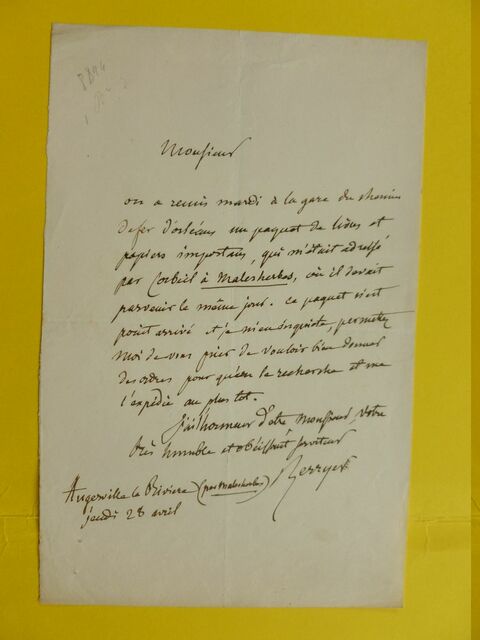 Monsieur
on a remis mardi à la gare du chemin
de fer d'orléans un paquet de livres et
papiers importans, qui m'était adressé
par Corbeil à Malesherbes, où il devait
parvenir le même jour. ce paquet n'est
point arrivé et je m'en inquiète, permettez
moi de vous prier de vouloir bien donner
des ordres pour qu'on le recherche et me
l'expédie au plus tot.
J'ai l'honneur d'être Monsieur, votre
très humble et obéissant serviteur
Berryer
Augerville la Rivière (par Malesherbes)
jeudi 28 avril